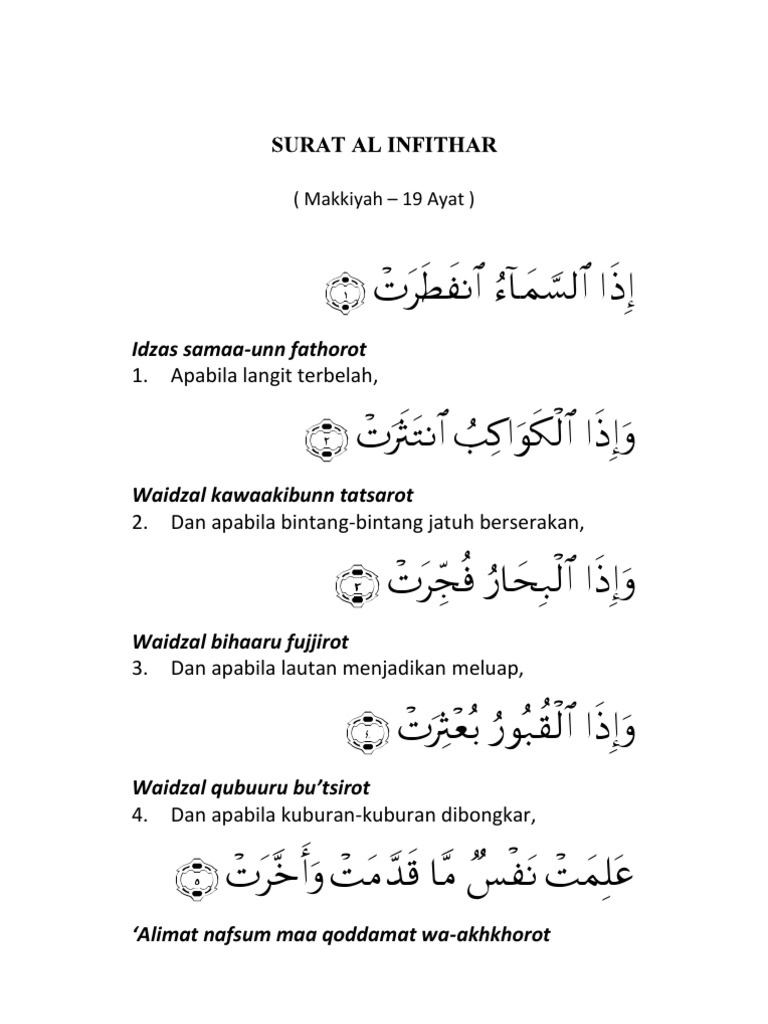 SURAT AL INFITHAR
( Makkiyah – 19 Ayat )
إِذَا ٱلسَّمَآءُ ٱنفَطَرَتۡ ١
Idzas samaa-unn fathorot
1. Apabila langit terbelah,
وَإِذَا ٱلۡكَوَاكِبُ ٱنتَثَرَتۡ ٢
Waidzal kawaakibunn tatsarot
2. Dan apabila bintang-bintang jatuh berserakan,
وَإِذَا ٱلۡبِحَارُ فُجِّرَتۡ ٣
Waidzal bihaaru fujjirot
3. Dan apabila lautan menjadikan meluap,
وَإِذَا ٱلۡقُبُورُ بُعۡثِرَتۡ ٤
Waidzal qubuuru bu’tsirot
4. Dan apabila kuburan-kuburan dibongkar,
عَلِمَتۡ نَفۡسٞ مَّا قَدَّمَتۡ وَأَخَّرَتۡ ٥
‘Alimat nafsum maa qoddamat wa-akhkhorot